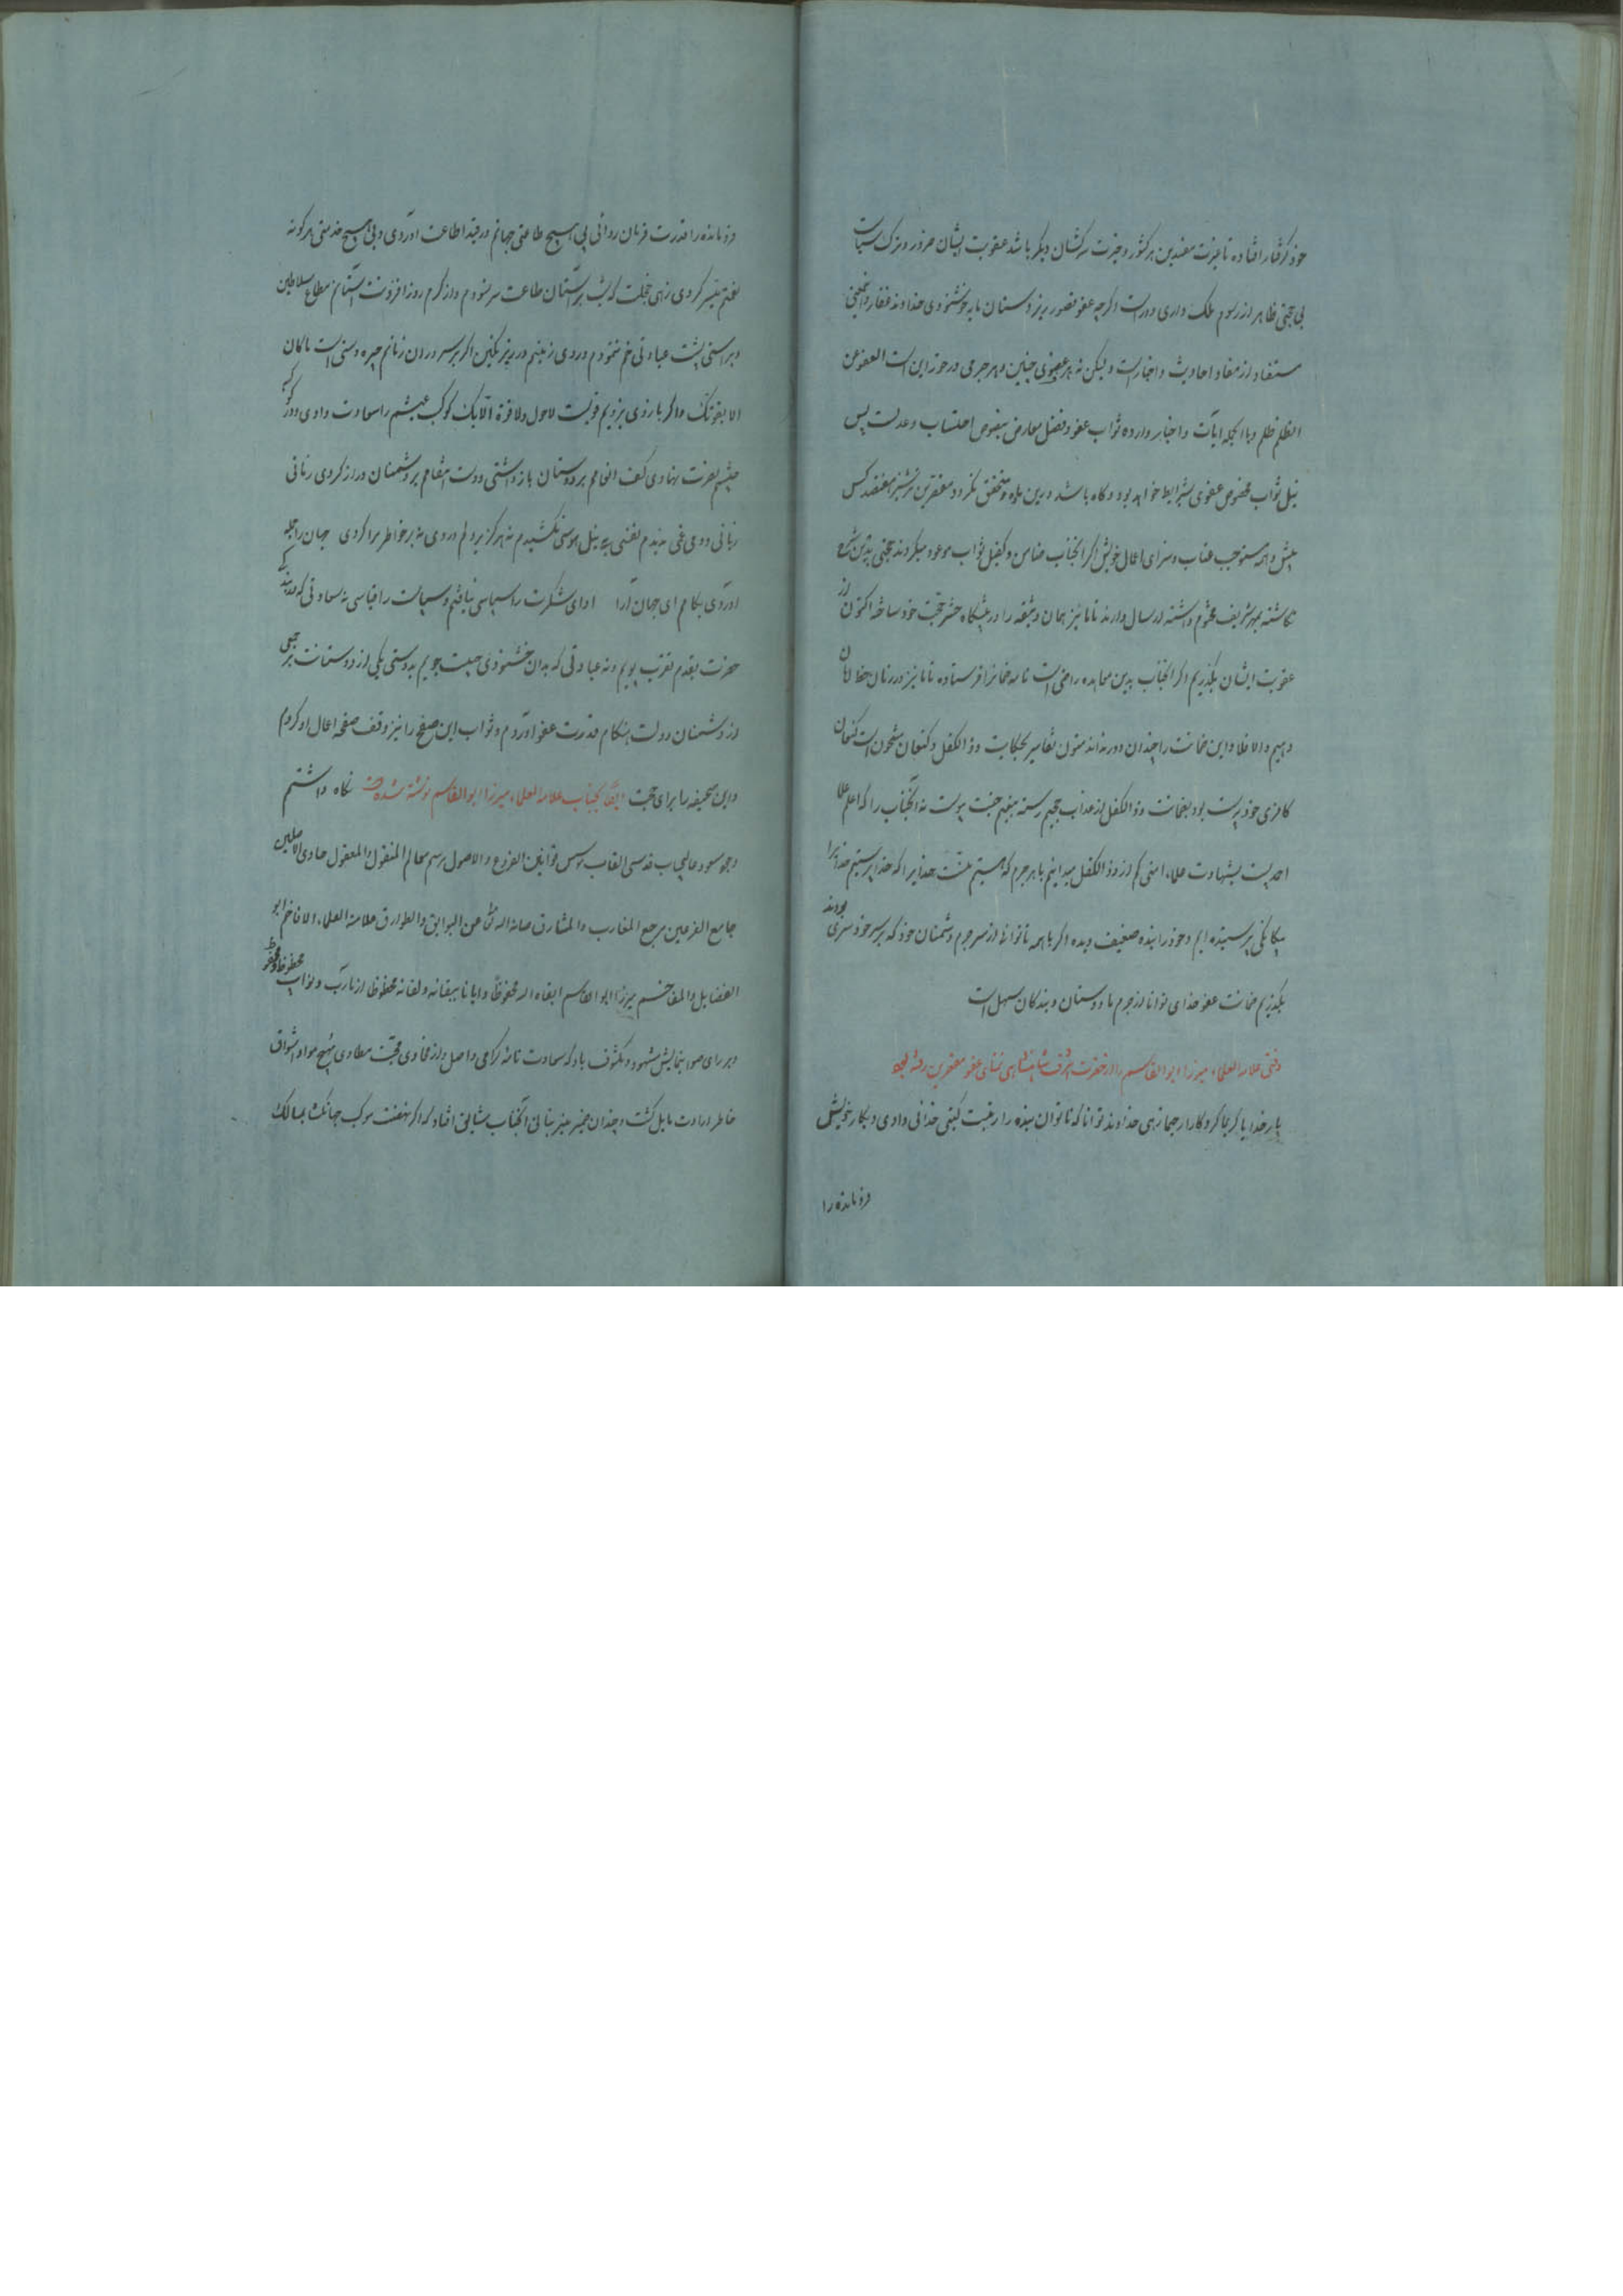 خود گرفتار افتاده تا عبرت مفسدین هر کشور و حیرت سرکشان دیگر باشد عقوبت ایشان ضرور و ترک سیاست
بی حجتی ظاهر از رسوم ملک داری دور است اگرچه عفو قصور زیردستان مایه خوشنودی خداوند غفار و
مستفاد از مفاد احادیث و اخبار است ولیکن نه هر عفوی چنین و هر جرمی درخور این است العفو عن
الظلم ظلم و بالجمله آیات و اخبار وارده ثواب عفو و فضل معارض بنصوص احتساب و عدلست پس
نیل ثواب مخصوص عفوی بشرایط خواهد بود و گاه باشد در این ماده متحقق نگردد مقصرین
بیش و همه مستوجب عتاب و سزای اعمال خویش اگر آنجناب ضامن و کفیل ثواب موعود میگردند حجتی بدین شرح
نگاشته بمهر شریف مختوم داشته ارسال دارند تا ما نیز همان وثیقه را در پیشگاه حشر حجت خود ساخته اکنون از
عقوبت ایشان بگذریم اگر آنجناب بدین معاهده راضی است نامه ضمانرا فرستاده تا ما نیز در زمان خط امان
دهیم والا فلا و این ضمانت را چندان دور ندانند متون تفاسیر بحکایت ذو الکفل و کنعان مشحون است کنعان
کافری خودپرست بود بضمانت ذو الکفل از عذاب جحیم رسته بنعیم جنت پیوست نه آنجناب را که اعلم علمای
احدیست بشهادت علماء امتی کم از ذو الکفل میدانیم با هر جرم که هستیم منت خدایرا که خداپرستیم خدایرا
بیگانگی پرستیده ایم و خود را بنده ضعیف دیده اگر با همه ناتوانیها از سر جرم دشمنان خود که بر سر خودسری بودند
بگذریم ضمانت عفو خدای توانا از جرم ما دوستان و بندگان سهل است
علامة العلماء میرزا ابو القاسم را از حضرت اشرف شاهنشاهی تمنای عفو مقصرین رفته بود
بار خدایا کریما کردگارا رحیما زهی خداوند توانا که ناتوان بنده را رتبت گیتی خدائی دادی و بکار خویش
فرومانده را
فرومانده را قدرت فرمان روائی بی هیچ طاعتی جهانم در قید اطاعت آوردی و بی هیچ خدمتی هر گونه
نعمتم میسر کردی زهی خجلت که شب بر آستان طاعت سر نسودم و از کرم روز افزونت آستانم مطاع سلاطین
و براستی پشت عبادتی خم ننمودم و روی زمینم در زیر نگین اگر بر سروران زمانم چیره دستی است ما کان
الا بقوتک و اگر بازوی نیرویم قویست لاحول ولا قوة الا بک کوکب عیشم را سعادت دادی و دور که
جیشم نصرت نهادی کف انعامم بر دوستان باز داشتی و دست انتقامم بر دشمنان دراز کردی زمانی
زمانی روی غمی ندیدم نفسی بی نیل هوسی نکشیدم نه هرگز بر دلم دردی نه بر خاطر مرا گردی جهان را جمله
آوردی بکامم ای جهان آرا ادای شکرت را سپاسی نیافتم و سپاست را قیاسی نه سعادتی که
حضرت بقدم تقرب پویم و نه عبادتی که بدان خشنودی حبیبت جویم بدوستی یکی از دوستانت بر جمعی
از دشمنان دولت هنگام قدرت عفو آوردم و ثواب این صفح را نیز وقف صفحه اعمال او کردم
و این صحیفه را برای حجت نگاه داشتم
ایضا بجناب علامة العلماء میرزا ابو القاسم نوشته شده
وجود مسعود عالیجناب قدسی القاب مؤسس قوانین الفروع و الاصول مرسم معالم المنقول و المعقول حاوی الاصلین
جامع الفرعین مرجع المغارب و المشارق صانه الله تعالی عن البوایق و الطوارق علامة العلماء الافاخم ابو
الفضایل و المفاخم میرزا ابو القاسم ابقاه الله محفوظا و ایانا ببقائه و لقائه محظوظا از مآرب و مواهب محظوظ و
و بر رای صواب نمایش مشهود و مکشوف باد که سعادت نامه گرامی واصل و از فحاوی محبت مطاوی مهیج مواد اشواق
خاطر ارادت مایل گشت و چندان ضمیر منیر بتلاقی آنجناب مشتاق افتاد که اگر نهضت موکب جهانگشا بممالک